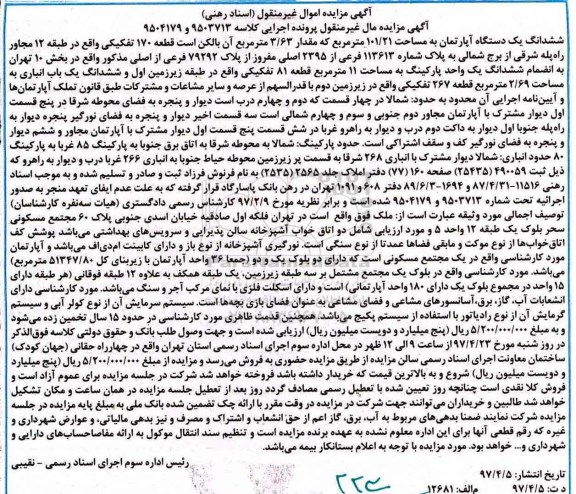 آگهی مزایده اموال غیرمنقول (اسناد رهنی)
آگهی مزایده مال غیرمنقول پرونده اجرایی کلاسه ۹۵۰۳۷۱۳ و ۹۵۰۴۱۷۹
ششدانگ یک دستگاه آپارتمان به مساحت ۱۰۱/۲۱ مترمربع که مقدار ۳/۶۳ مترمربع آن بالکن است قطعه ۱۷۰ تفکیکی واقع در طبقه ۱۲ مجاور
راه‌پله شرقی از برج شمالی به پلاک شماره ۱۱۳۶۱۳ فرعی از ۲۳۹۵ اصلی مفروز از پلاک ۷۹۲۹۲ فرعی از اصلی مذکور واقع در بخش ۱۰ تهران
به انضمام ششدانگ یک واحد پارکینگ به مساحت ۱۱ مترمربع قطعه ۸۱ تفکیکی واقع در طبقه زیرزمین اول و ششدانگ یک باب انباری به
مساحت ۲/۶۹ مترمربع قطعه ۲۶۷ تفکیکی واقع در زیرزمین دوم با قدرالسهم از عرصه و سایر مشاعات و مشترکات طبق قانون تملک آپارتمان‌ها
و آیین‌نامه اجرایی آن محدود به حدود: شمالا در چهار قسمت که دوم و چهارم درب است دیوار و پنجره به فضای محوطه شرقا در پنج قسمت
اول دیوار مشترک با آپارتمان مجاور دوم جنوبی و سوم و چهارم شمالی است سه قسمت اخیر دیوار و پنجره به فضای نورگیر پنجره دیوار به
راه‌پله جنوبا اول دیوار به داکت دوم درب و دیوار به راهرو غربا در شش قسمت پنج قسمت اول دیوار مشترک با آپارتمان مجاور و ششم دیوار
و پنجره به فضای نورگیر کف و سقف اشتراکی است. حدود پارکینگ: شمالا به محوطه شرقا به اتاق برق جنوبا به پارکینگ ۸۵ غربا به پارکینگ
۸۰ حدود انباری: شمالا دیوار مشترک با انباری ۲۶۸ شرقا به قسمت پر زیرزمین محوطه حیاط جنوبا به انباری ۲۶۶ غربا درب و دیوار به راهرو که
ذیل ثبت ۴۹۰۰۵۹ (۲۵۴۳۵) صفحه ۱۶۰ (۷۷) دفتر به نام فرنوش فرزاد ثبت و صادر و تسلیم شده و به موجب اسناد
رهنی تهران در رهن بانک پاسارگاد قرار گرفته که به علت عدم ایفای تعهد منجر به صدور
اجرائیه تحت شماره ۹۵۰۳۷۱۳ و ۹۵۰۴۱۷۹ شده است و برابر نظریه مورخ ۹۷/۲/۹ کارشناس رسمی دادگستری (هیات سه‌نفره کارشناسان)
توصیف اجمالی مورد وثیقه عبارت است از: ملک فوق واقع است در تهران فلکه اول صادقیه خیابان اسدی جنوبی پلاک ۶۰ مجتمع مسکونی
سحر بلوک یک طبقه ۱۲ واحد ۵ و مورد ارزیابی شامل دو اتاق خواب آشپزخانه سالن پذیرایی و سرویس‌های بهداشتی می‌باشد پوشش کف
اتاق‌خواب‌ها از نوع موکت و مابقی فضاها عمدتا از نوع سنگی است. نورگیری آشپزخانه از نوع باز و دارای کابینت ام‌دی‌اف می‌باشد و آپارتمان
مورد کارشناسی واقع در یک مجتمع مسکونی است که دارای دو بلوک یک و دو (جمعا ۳۶۰ واحد آپارتمان با زیربنای کل ۵۱۳۴۷/۸۰ مترمربع)
می‌باشد. مورد کارشناسی واقع در بلوک یک مجتمع مشتمل بر سه طبقه زیرزمین، یک طبقه همکف به علاوه ۱۲ طبقه فوقانی (هر طبقه دارای
۱۵ واحد در مجموع بلوک یک دارای ۱۸۰ واحد آپارتمانی) است و دارای اسکلت فلزی با نمای مرکب آجر و سنگ می‌باشد. مورد کارشناسی دارای
انشعابات آب، گاز، برق، آسانسورهای مشاعی و فضای مشاعی به عنوان فضای بازی بچه‌ها است. سیستم سرمایش آن از نوع کولر آبی و سیستم
گرمایش آن از نوع رادیاتور با استفاده از سیستم پکیج می‌باشد. همچنین قدمت ظاهری مورد کارشناسی در حدود ۱۵ سال تخمین زده می‌شود
و به مبلغ ۵/۲۰۰/۰۰۰/۰۰۰ ریال (پنج میلیارد و دویست میلیون ریال) ارزیابی شده است و جهت وصول طلب بانک و حقوق دولتی کلاسه فوق‌الذکر
در روز شنبه مورخ ۹۷/۴/۲۳ از ساعت ۹ الی ۱۲ ظهر در محل اداره سوم اجرای اسناد رسمی استان تهران واقع در چهارراه حقانی (جهان کودک)
ساختمان معاونت اجرای اسناد رسمی سالن مزایده از طریق مزایده حضوری به فروش می‌رسد و مزایده از مبلغ ۵/۲۰۰/۰۰۰/۰۰۰ ریال (پنج میلیارد
و دویست میلیون ریال) شروع و به بالاترین قیمت که خریدار داشته باشد فروخته خواهد شد شرکت در جلسه مزایده برای عموم آزاد است و
فروش کلا نقدی است چنانچه روز تعیین شده با تعطیل رسمی مصادف گردد روز بعد از تعطیل جلسه مزایده در همان ساعت و مکان تشکیل
خواهد شد طالبین و خریداران می‌توانند جهت شرکت در مزایده در وقت مقرر با ارائه چک تضمین شده بانک ملی به مبلغ پایه مزایده در جلسه
مزایده شرکت نمایند ضمنا بدهی‌های مربوط به آب، برق، گاز اعم از حق‌انشعاب و اشتراک و مصرف و نیز بدهی مالیاتی، و عوارض شهرداری و
غیره که رقم قطعی آنها برای این اداره معلوم نشده به عهده برنده مزایده است و تنظیم سند انتقال موکول به ارائه مفاصاحساب‌های دارایی و
شهرداری و... خواهد بود. مورد مزایده با توجه به اعلام بستانکار بیمه می‌باشد.
رئیس اداره سوم اجرای اسناد رسمی - نقیبی
تاریخ انتشار: ۹۷/۴/۵
د.ت: ۹۷/۴/۵ م‌الف: ۱۲۶۸۱